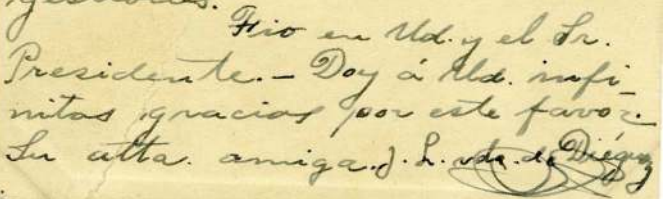 gestiones.
Fio en Ud. y el Sr.
Presidente. — Doy á Ud. infi-
nitas gracias por este favor.
Su atta. amiga. J. L. vda. de Diéguez